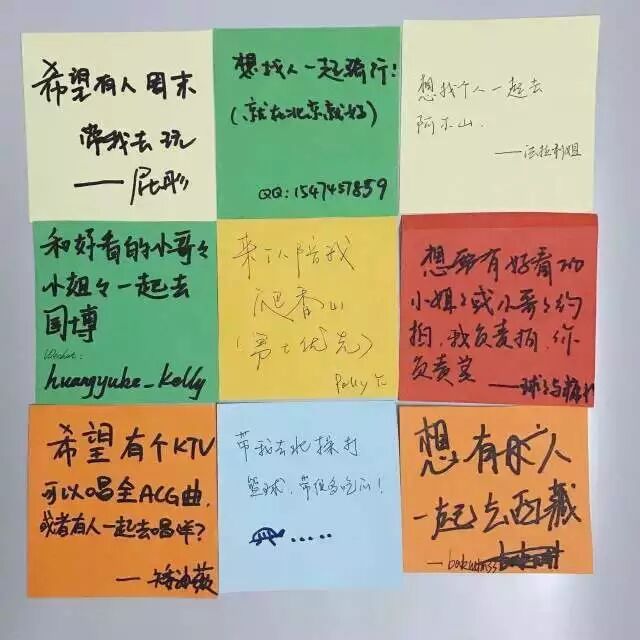 希望有人周末
带我去玩
想找人一起骑行!
(就在北京就好)
QQ:1547457859
想找个人一起去
阿尔山.
和好看的小哥々
小姐々一起去
国博
Wechat:
huangyuke_Kelly
来个人陪我
爬香山
(男士优先)
想要有好看的
小姐々或小哥々约
拍,我负责拍,你
负责美
希望有个KTV
可以唱全ACG曲,
或者有人一起去唱咩?
带我去北操打
篮球,带你去吃瓜!
想有成人
一起去西藏